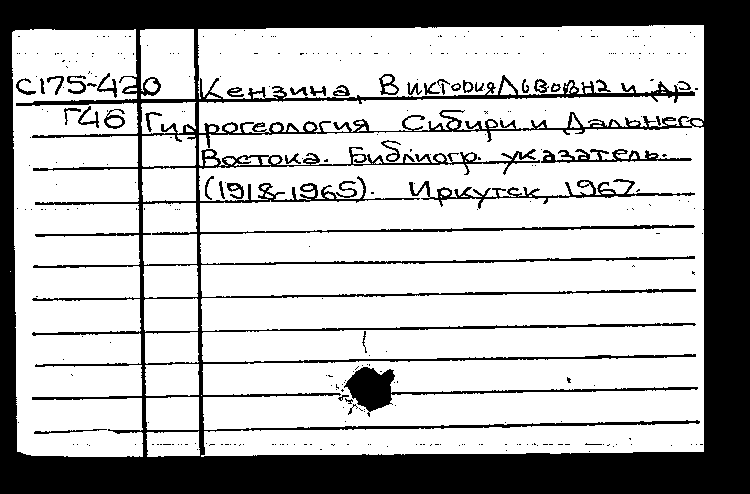 С175-420 Кензина, Виктория Львовна и др.
Г46 Гидрогеология Сибири и Дальнего
Востока. Библиогр. указатель.
(1918-1965). Иркутск, 1967.